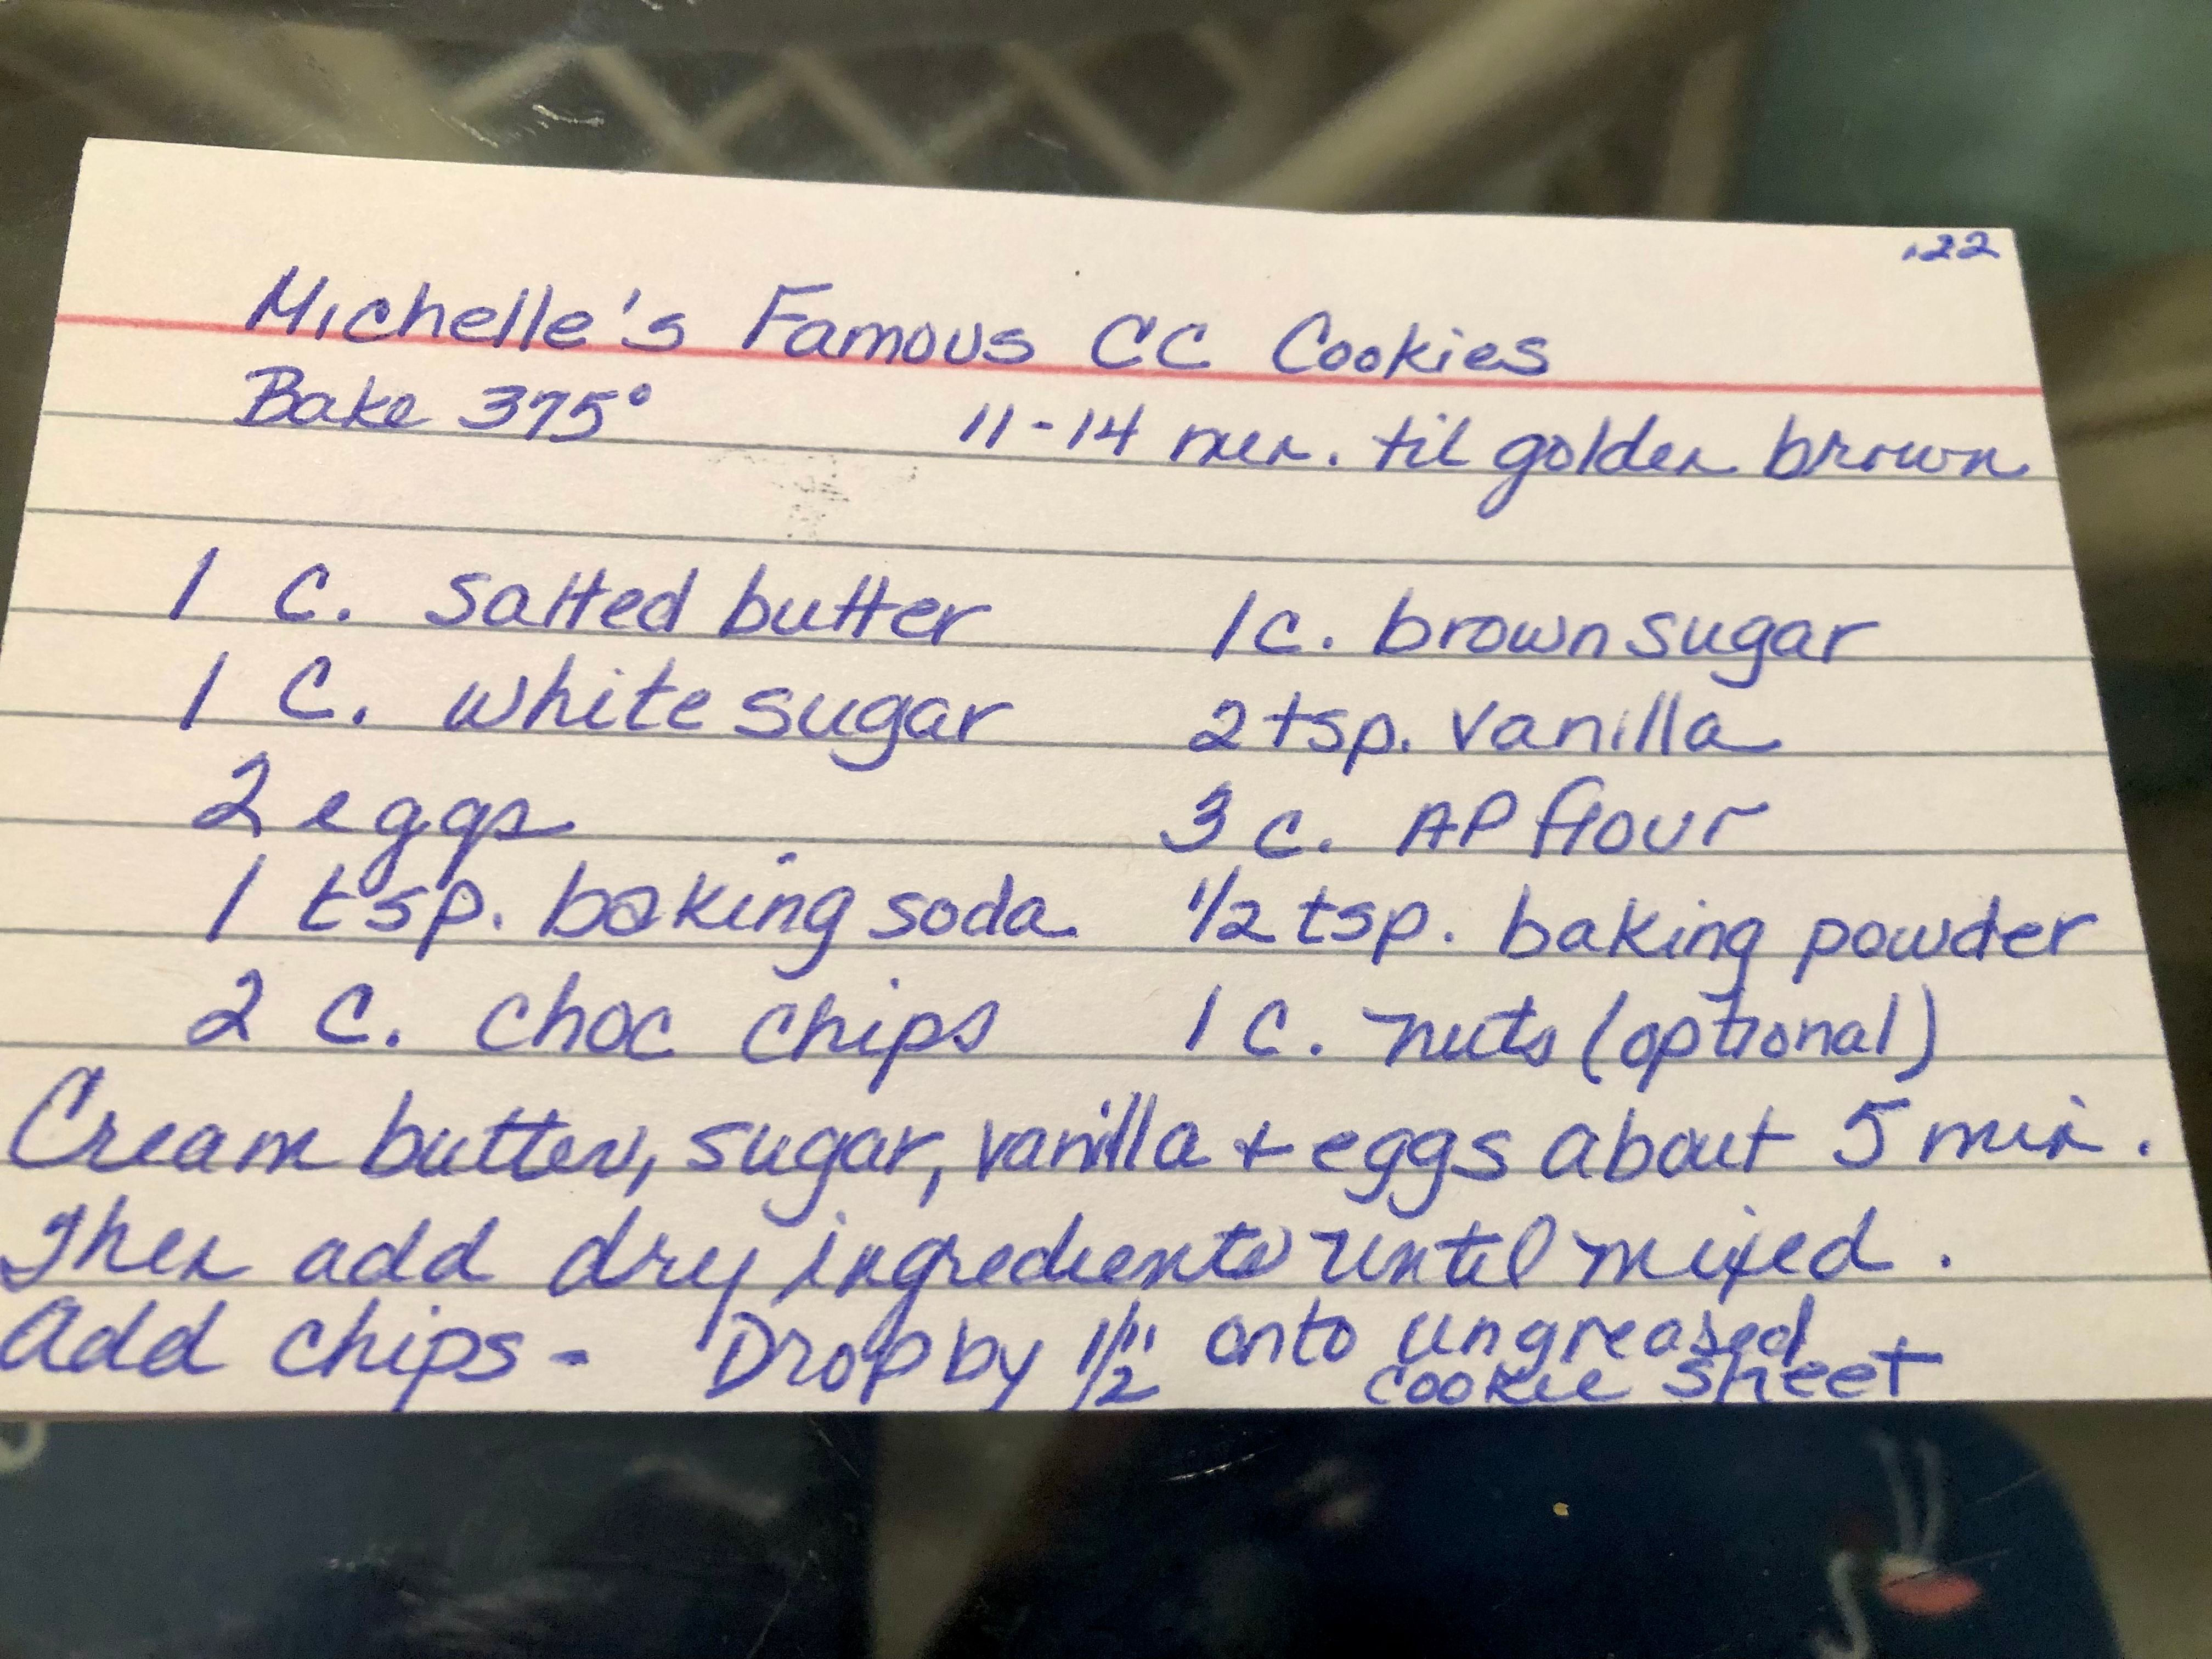 .22
Michelle's Famous CC Cookies
Bake 375° 11-14 min. til golden brown
1 C. salted butter 1 c. brown sugar
1 C. white sugar 2 tsp. vanilla
2 eggs 3 c. AP flour
1 tsp. baking soda 1/2 tsp. baking powder
2 C. choc chips 1 C. nuts (optional)
Cream butter, sugar, vanilla + eggs about 5 min.
Then add dry ingredients until mixed.
Add chips - Drop by 1/2" onto ungreased
cookie sheet